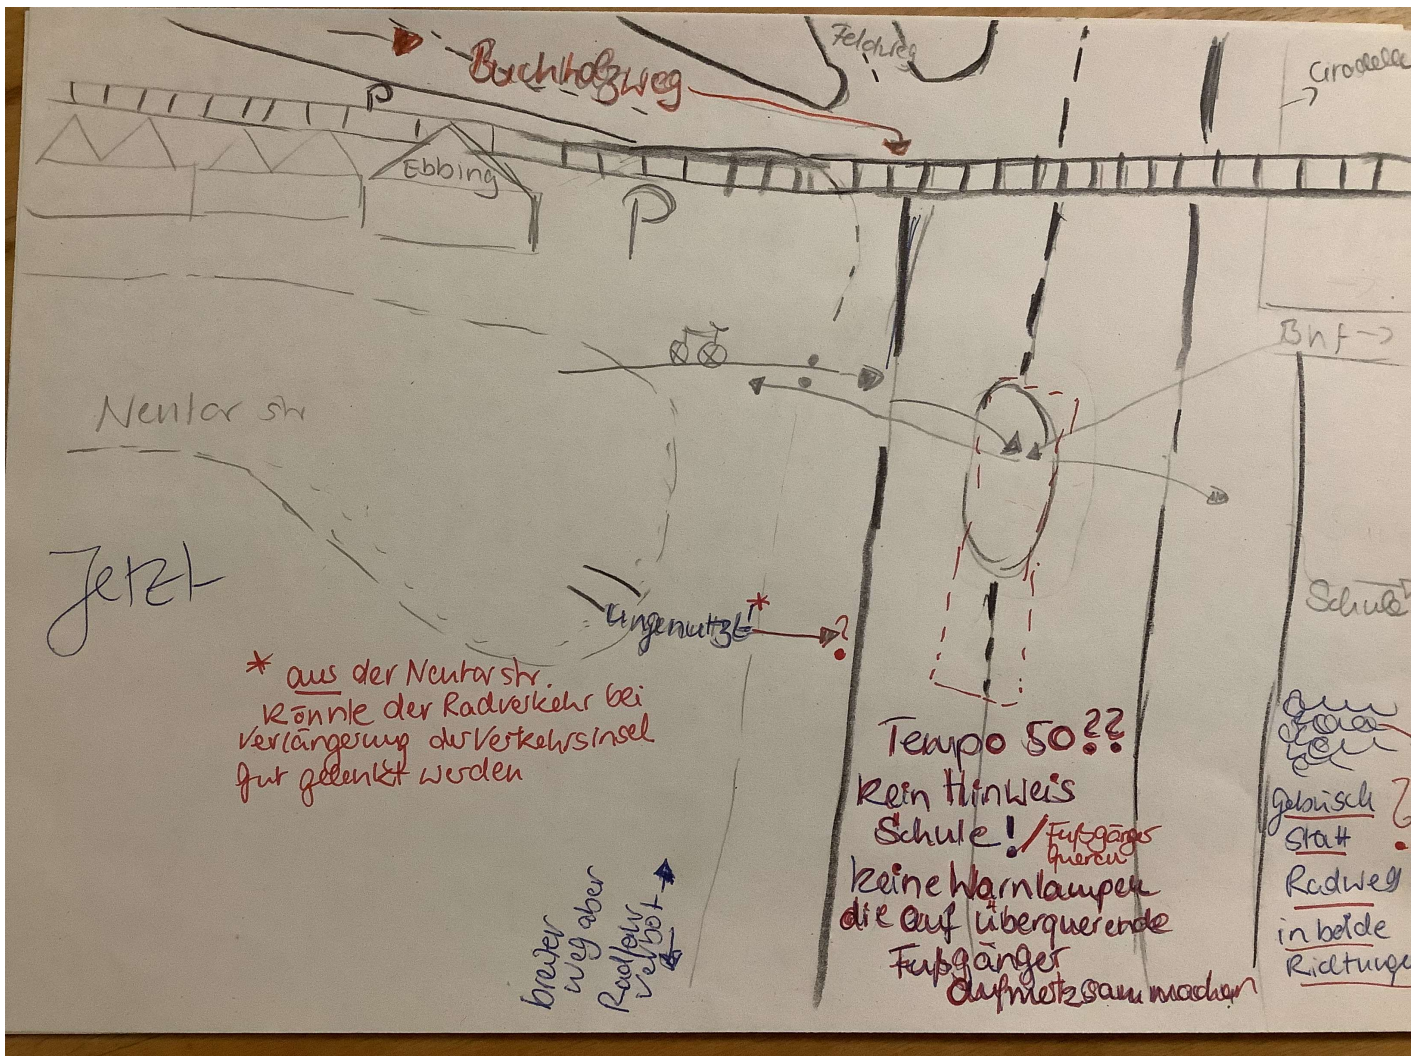 Feldweg
Buchholzweg
P
Ebbing
P
Bhf →
Neutor str
Jetzt
ungenutzt! *
?
Schule
* aus der Neutorstr.
könnte der Radverkehr bei
Verlängerung der Verkehrsinsel
gut gelenkt werden
Tempo 50??
kein Hinweis
Schule! / Fußgänger
queren
keine Warnlampen
die auf überquerende
Fußgänger
aufmerksam machen
breiter
Weg aber
Radfahr
verbot
gebüsch
statt
Radweg
in beide
Richtunge
?